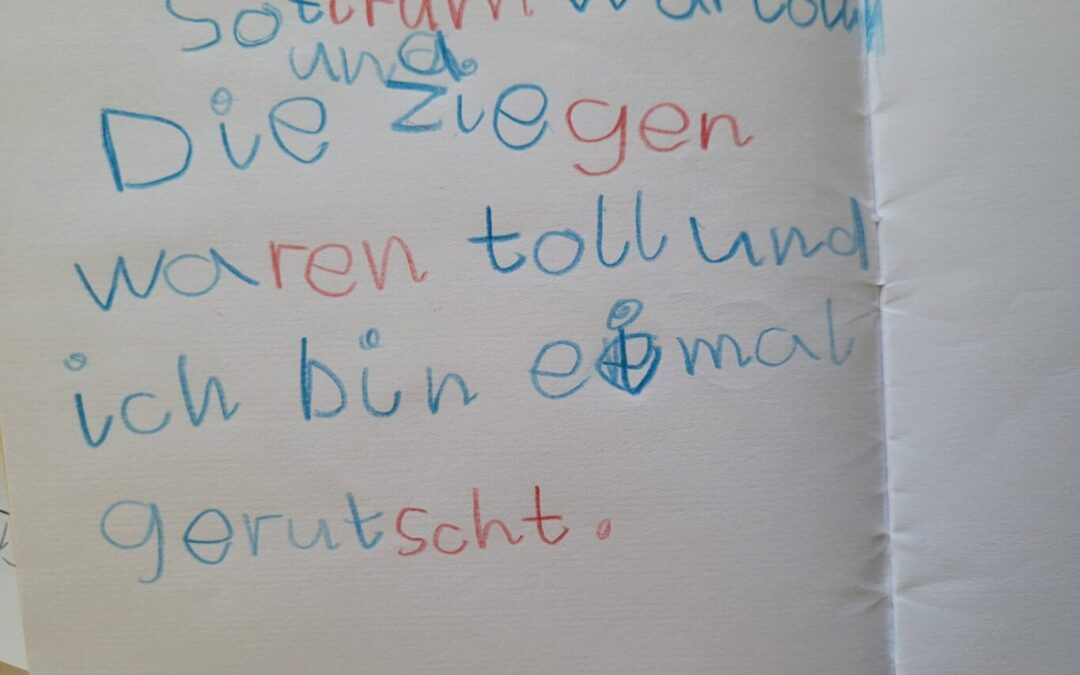 war
und
Die ziegen
waren toll und
ich bin eimal
gerutscht.